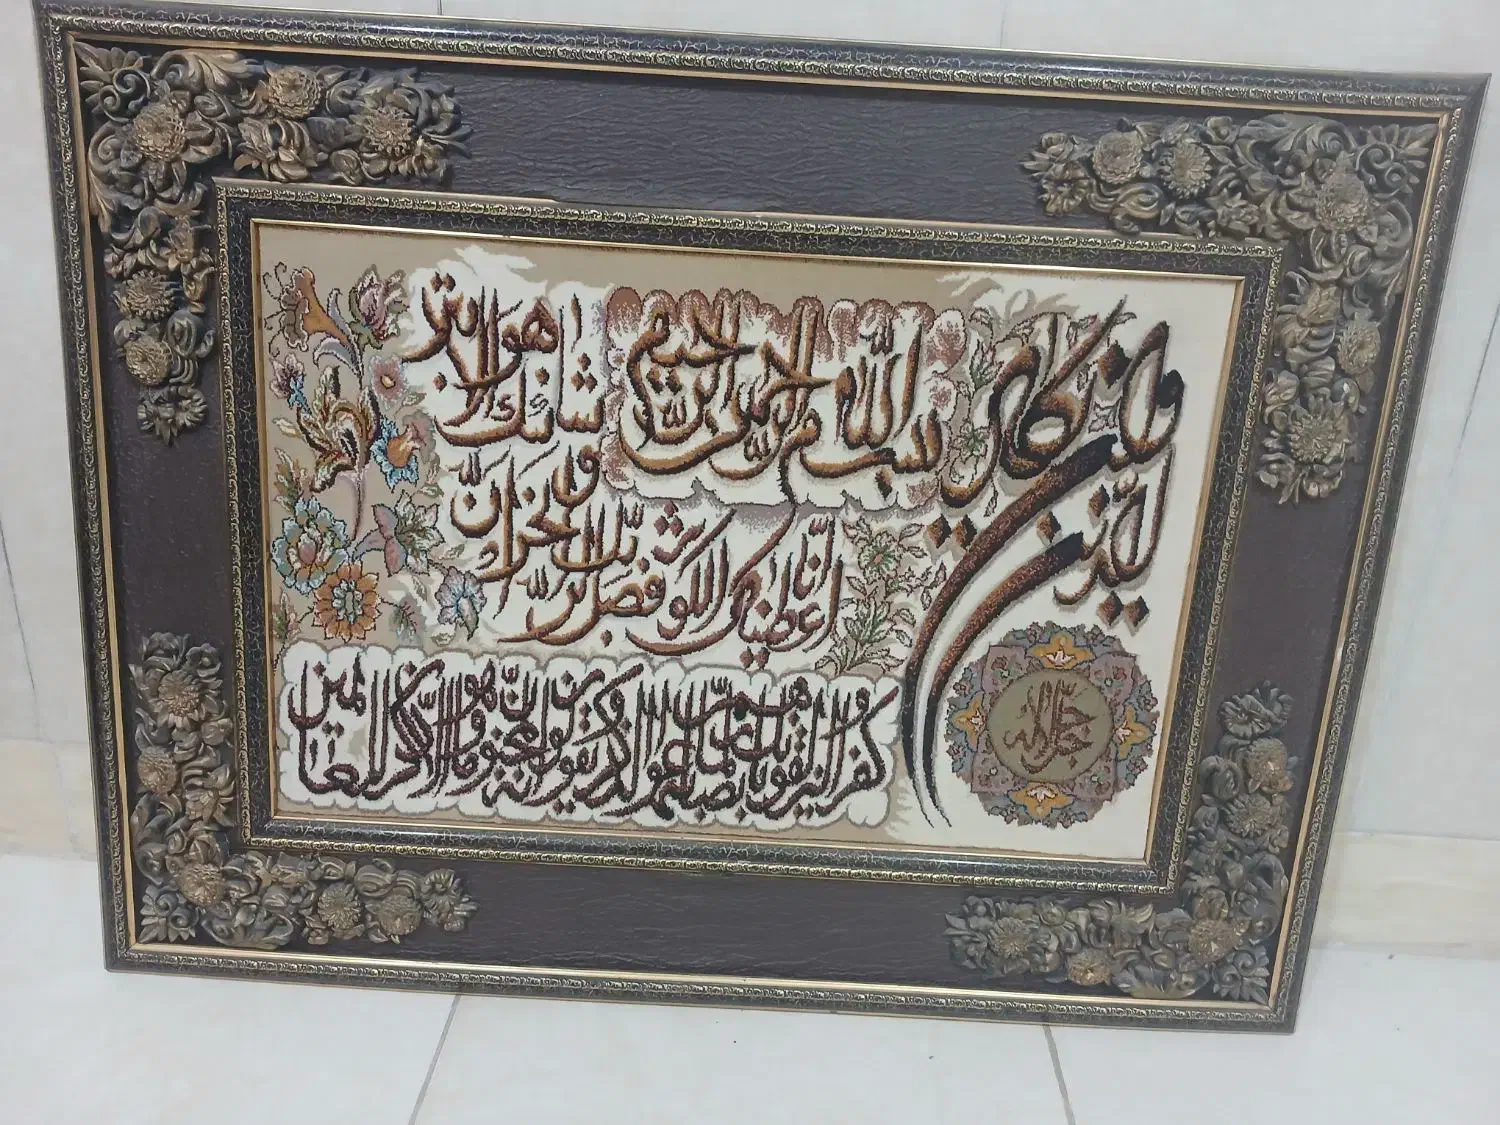 وان یکاد
الذین
بسم الله الرحمن الرحیم
انا اعطیناک الکوثر فصل لربک وانحر ان
شانئک هو الابتر
کفروا لیزلقونک بابصارهم لما سمعوا الذکر و یقولون انه لمجنون و ما هو الا ذکر للعالمین
جل جلاله